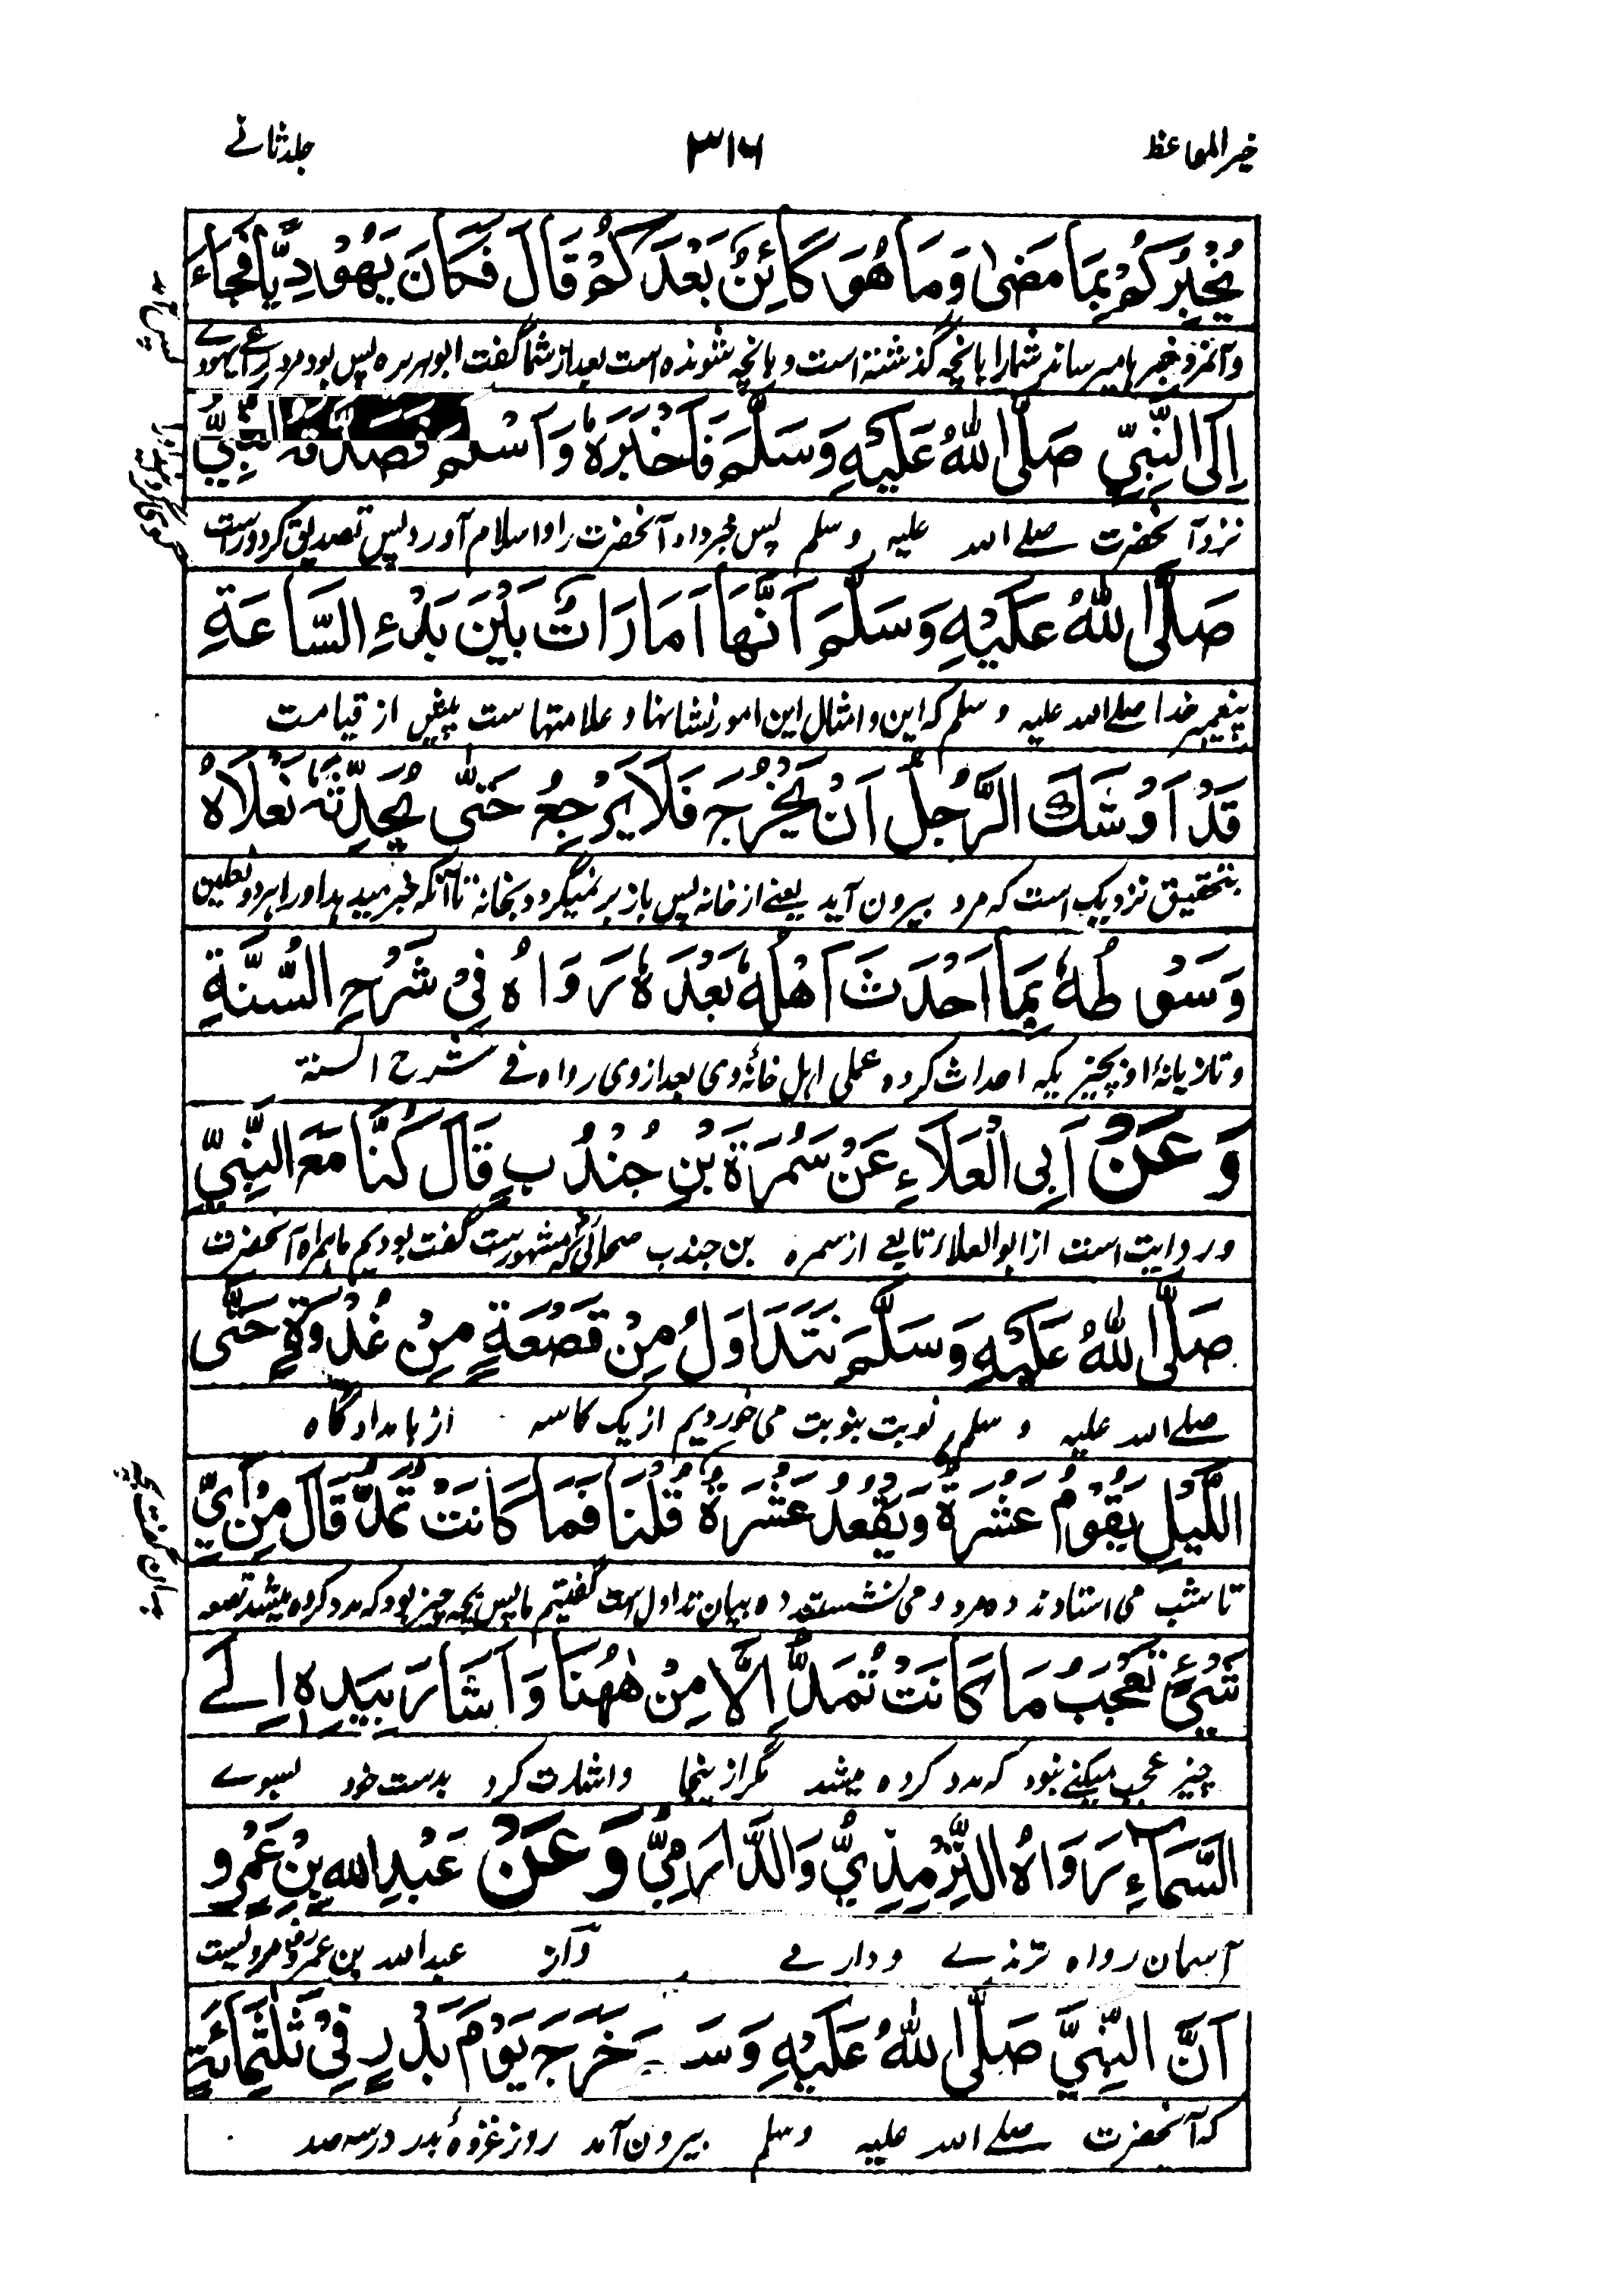 خیر المواعظ ۳۱۶ جلد ثانے
يُخْبِرُكُمْ بِمَا مَضٰى وَمَا هُوَ كَائِنٌ بَعْدَكُمْ قَالَ فَكَانَ يَهُوْدِيًّا فَجَاءَ
وآنمرد خبر ہا میرساند شمارا بانچہ گذشتہ است و بانچہ شوندہ است بعد از شما گفت ابو ہریرہ پس بود مرد راعے یہودے
اِلَى النَّبِيِّ صَلَّى اللهُ عَلَيْهِ وَسَلَّمَ فَاَخْبَرَهٗ وَاَسْلَمَ فَصَدَّقَهُ النَّبِيُّ
نزد آنحضرت صلے اللہ علیہ وسلم پس خبر داد آنحضرت را و اسلام آورد پس تصدیق کرد و راست
صَلَّى اللهُ عَلَيْهِ وَسَلَّمَ اَنَّهَا اَمَارَاتٌ بَيْنَ بَدْءِ السَّاعَةِ
پیغمبر خدا صلے اللہ علیہ وسلم کہ این و امثال این امور نشانہا و علامتہاست پیش از قیامت
قَدْ اَوْشَكَ الرَّجُلُ اَنْ يَخْرُجَ فَلَا يَرْجِعُ حَتّٰى يُحَدِّثَهٗ نَعْلَاهُ
بتحقیق نزدیک است کہ مرد بیرون آید یعنے از خانہ پس باز بر نمیگردد بخانہ تا آنکہ خبر میدہد اورا ہردو نعلین
وَسَوْطُهٗ بِمَا اَحْدَثَ اَهْلُهٗ بَعْدَهٗ رَوَاهُ فِيْ شَرْحِ السُّنَّةِ
و تازیانۂ او بچیزیکہ احداث کردہ عملی اہل خانۂ وی بعد از وی رواہ فے شرح السنۃ
وَعَنْ اَبِى الْعَلَاءِ عَنْ سَمُرَةَ بْنِ جُنْدُبٍ قَالَ كُنَّا مَعَ النَّبِيِّ
و روایت است از ابو العلاء تابعے از سمرہ بن جندب صحابی کہ مشہور ست گفت بودیم ما ہمراہ آنحضرت
صَلَّى اللهُ عَلَيْهِ وَسَلَّمَ نَتَدَاوَلُ مِنْ قَصْعَةٍ مِنْ غُدْوَةٍ حَتَّى
صلے اللہ علیہ وسلم نوبت بنوبت می خوردیم از یک کاسہ از بامداد گاہ
اللَّيْلِ يَقُوْمُ عَشْرَةٌ وَيَقْعُدُ عَشْرَةٌ قُلْنَا فَمَا كَانَتْ تُمَدُّ قَالَ مِنْ اَيِّ
تا شب می استادند دہ مرد و می نشستند دہ بیان تداول ست گفتیم ما پس بچہ چیز بود کہ مدد کردہ میشد قصعہ
شَيْءٍ تَعْجَبُ مَا كَانَتْ تُمَدُّ اِلَّا مِنْ هٰهُنَا وَاَشَارَ بِيَدِهٖ اِلَے
چیز عجب میکنے نبود کہ مدد کردہ میشد مگر از ینجا و اشارت کرد بدست خود بسوے
السَّمَاءِ رَوَاهُ التِّرْمِذِيُّ وَالدَّارَمِيُّ وَعَنْ عَبْدِ اللهِ بْنِ عَمْرٍو
آسمان رواہ ترمذے و دارمے و از عبد اللہ بن عمرو مرویست
اَنَّ النَّبِيَّ صَلَّى اللهُ عَلَيْهِ وَسَـ خَرَجَ يَوْمَ بَدْرٍ فِيْ ثَلٰثِمِائَةٍ
کہ آنحضرت صلے اللہ علیہ وسلم بیرون آمد روز غزوۂ بدر در سہ صد